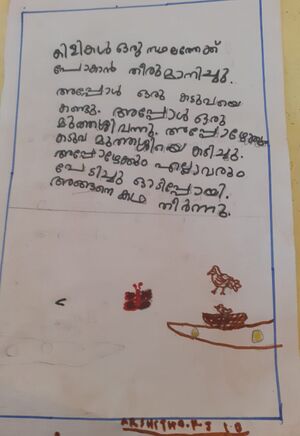 കിളികൾ ഒരു സ്ഥലത്തേക്ക്
പോകാൻ തീരുമാനിച്ചു.
അപ്പോൾ ഒരു കടുവയെ
കണ്ടു. അപ്പോൾ ഒരു
മുത്തശ്ശി വന്നു. അപ്പോഴേക്കും
കടുവ മുത്തശ്ശിയെ കടിച്ചു.
അപ്പോഴേക്കും എല്ലാവരും
പേടിച്ചു ഓടിപ്പോയി.
അങ്ങനെ കഥ തീർന്നു.
AKSHITHA.P.S 1.B